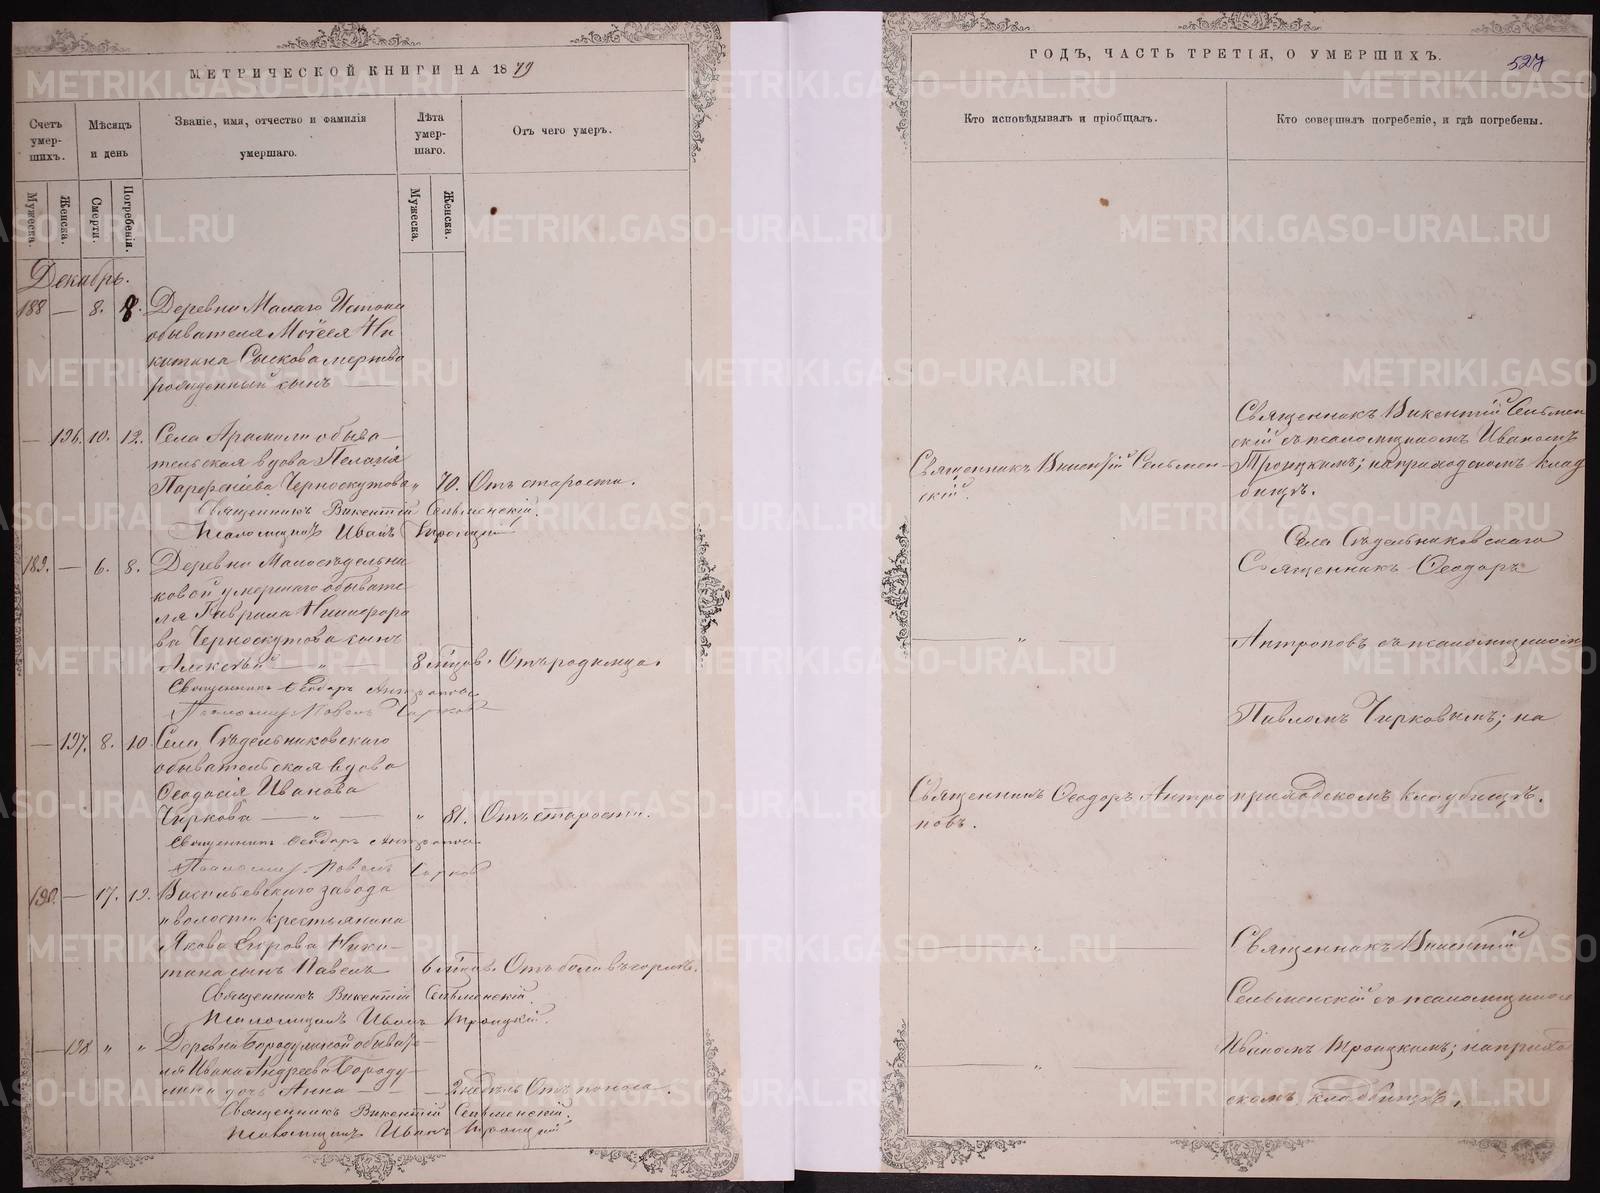 МЕТРИЧЕСКОЙ КНИГИ НА 1879
Счетъ умер-шихъ.
Мѣсяцъ и день
Званіе, имя, отчество и фамилія умершаго.
Лѣта умер-шаго.
Отъ чего умеръ.
Мужеска.
Женска.
Смерти.
Погребенія.
Мужеска.
Женска.
Декабрь.
188 — 8. 8. Деревни Малаго Истока
обывателя Моѵсея Ни
китина Сыскова мертво
рожденный сынъ —
— 136. 10. 12. Села Арамили обыва—
тельская вдова Пелагія
Парфеніева Черноскутова „ 70. Отъ старости.
Священникъ Викентій Сельменскій.
Псаломщикъ Иванъ Троицкій
189. — 6. 8. Деревни Малосѣдельни
ковой умершаго обывате
ля Гаврила Никифоро
ва Черноскутова сынъ
Алексѣй — „ — 8 мѣсяцов. Отъ родимца.
Священникъ Ѳеодоръ Антропов
Псаломщ. Павелъ Чирков
— 137. 8. 10 Села Сѣдельниковскаго
обывательская вдова
Ѳеодосія Иванова
Чиркова — „ — „ 81. Отъ старости.
Священникъ Ѳеодоръ Антропов
Псаломщ. Павелъ Чирков
190. — 17. 19. Васильевскаго завода
и волости крестьянина
Якова Егорова Ники—
тина сынъ Павелъ 6 мѣсяцов. Отъ боли въ горлѣ.
Священникъ Викентій Сельменскій.
Псаломщикъ Иванъ Троицкій.
— 138 „ „ Деревни Бородулиной обывате—
ля Ивана Андреева Бороду—
лина дочь Анна — — 2 недѣль Отъ поноса.
Священникъ Викентій Сельменскій.
Псаломщикъ Иванъ Троицкій
ГОДЪ, ЧАСТЬ ТРЕТІЯ, О УМЕРШИХЪ.
527
Кто исповѣдывалъ и пріобщалъ.
Кто совершалъ погребеніе, и гдѣ погребены.
Священникъ Викентій Сельмен
скій съ псаломщикомъ Иваномъ
Священникъ Викентій Сельмен—
скій.
Троицкимъ; на приходскомъ клад
бищѣ.
Села Сѣдельниковскаго
Священникъ Ѳеодоръ
— „ —
Антроповъ съ псаломщикомъ
Павломъ Чирковымъ; на
Священникъ Ѳеодоръ Антро
повъ.
приходскомъ кладбищѣ.
— „ —
Священникъ Викентій
Сельменскій съ псаломщикомъ
— „ —
Иваномъ Троицкимъ; на прихо
скомъ кладбищѣ.
METRIKI.GASO-URAL.RU